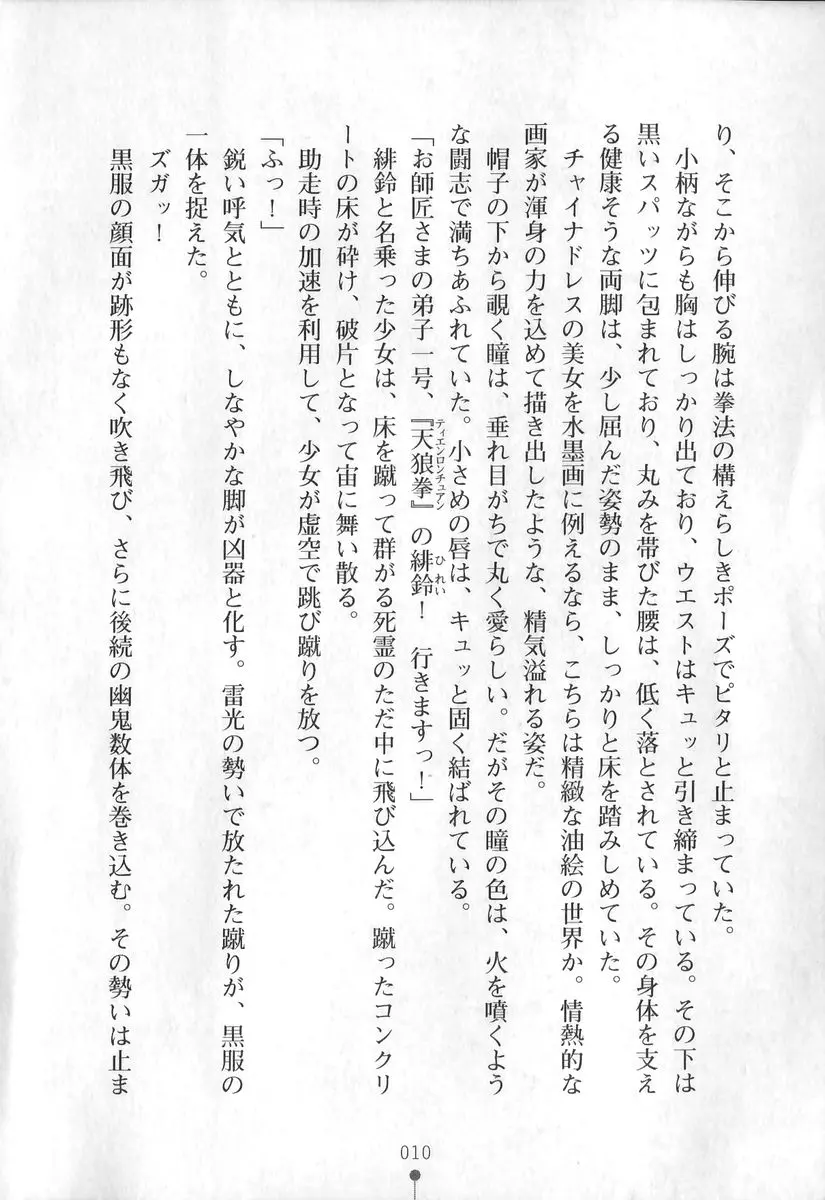 り、そこから伸びる腕は拳法の構えらしきポーズでピタリと止まっていた。
　小柄ながらも胸はしっかり出ており、ウエストはキュッと引き締まっている。その下は
黒いスパッツに包まれており、丸みを帯びた腰は、低く落とされている。その身体を支え
る健康そうな両脚は、少し屈んだ姿勢のまま、しっかりと床を踏みしめていた。
　チャイナドレスの美女を水墨画に例えるなら、こちらは精緻な油絵の世界か。情熱的な
画家が渾身の力を込めて描き出したような、精気溢れる姿だ。
　帽子の下から覗く瞳は、垂れ目がちで丸く愛らしい。だがその瞳の色は、火を噴くよう
な闘志で満ちあふれていた。小さめの唇は、キュッと固く結ばれている。
「お師匠さまの弟子一号、『天狼拳』の緋鈴！　行きますっ！」
ティエンロンチュアン
ひれい
　緋鈴と名乗った少女は、床を蹴って群がる死霊のただ中に飛び込んだ。蹴ったコンクリ
ートの床が砕け、破片となって宙に舞い散る。
　助走時の加速を利用して、少女が虚空で跳び蹴りを放つ。
「ふっ！」
　鋭い呼気とともに、しなやかな脚が凶器と化す。雷光の勢いで放たれた蹴りが、黒服の
一体を捉えた。
　ズガッ！
　黒服の顔面が跡形もなく吹き飛び、さらに後続の幽鬼数体を巻き込む。その勢いは止ま
010